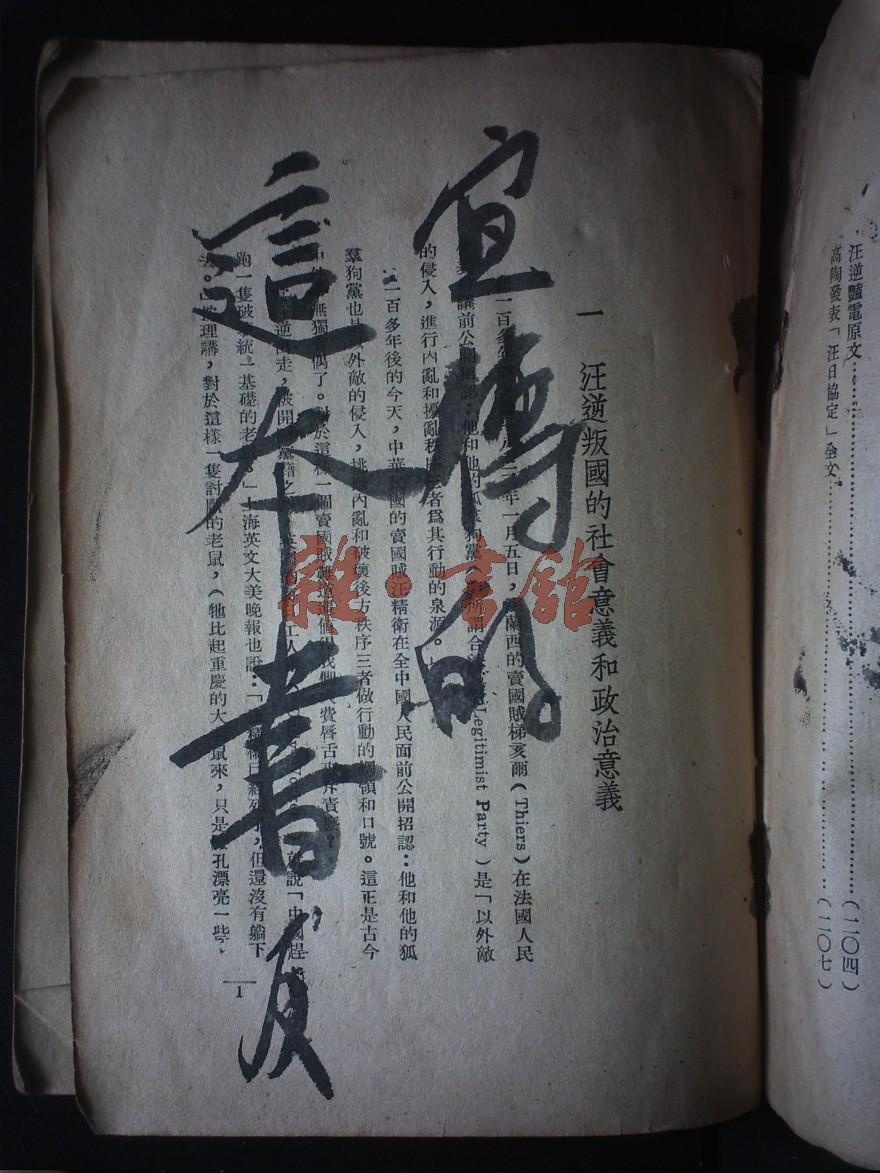 汪逆豔電原文……………………(二〇四)
高陶發表「汪日協定」全文……………………(二〇七)
一　汪逆叛國的社會意義和政治意義
一百多年 年一月五日，蘭西的賣國賊梯亥爾（Thiers）在法國人民
議前公開招認：他和他的狐羣狗黨（所謂合法 Legitimist Party）是「以外敵
的侵入，進行內亂和擾亂秩序三者爲其行動的泉源。」
二百多年後的今天，中華民國的賣國賊汪精衛在全中國人民面前公開招認：他和他的狐
羣狗黨也是以外敵的侵入，挑撥內亂和破壞後方秩序三者做行動的綱領和口號。這正是古今
無獨有偶了。對於這樣一個賣國賊難道還值得我們費唇舌 斥責嗎？
逆 走，被開除黨籍之 說「中國趕
跑一隻破 統一基礎的老鼠。」上海英文大美晚報也說：「 已經死了，但還沒有躺下
去。」按理講，對於這樣一隻討厭的老鼠，（牠比起重慶的大 鼠來，只是 孔漂亮一些，
1
宣傳的
這本書有
雜·書館